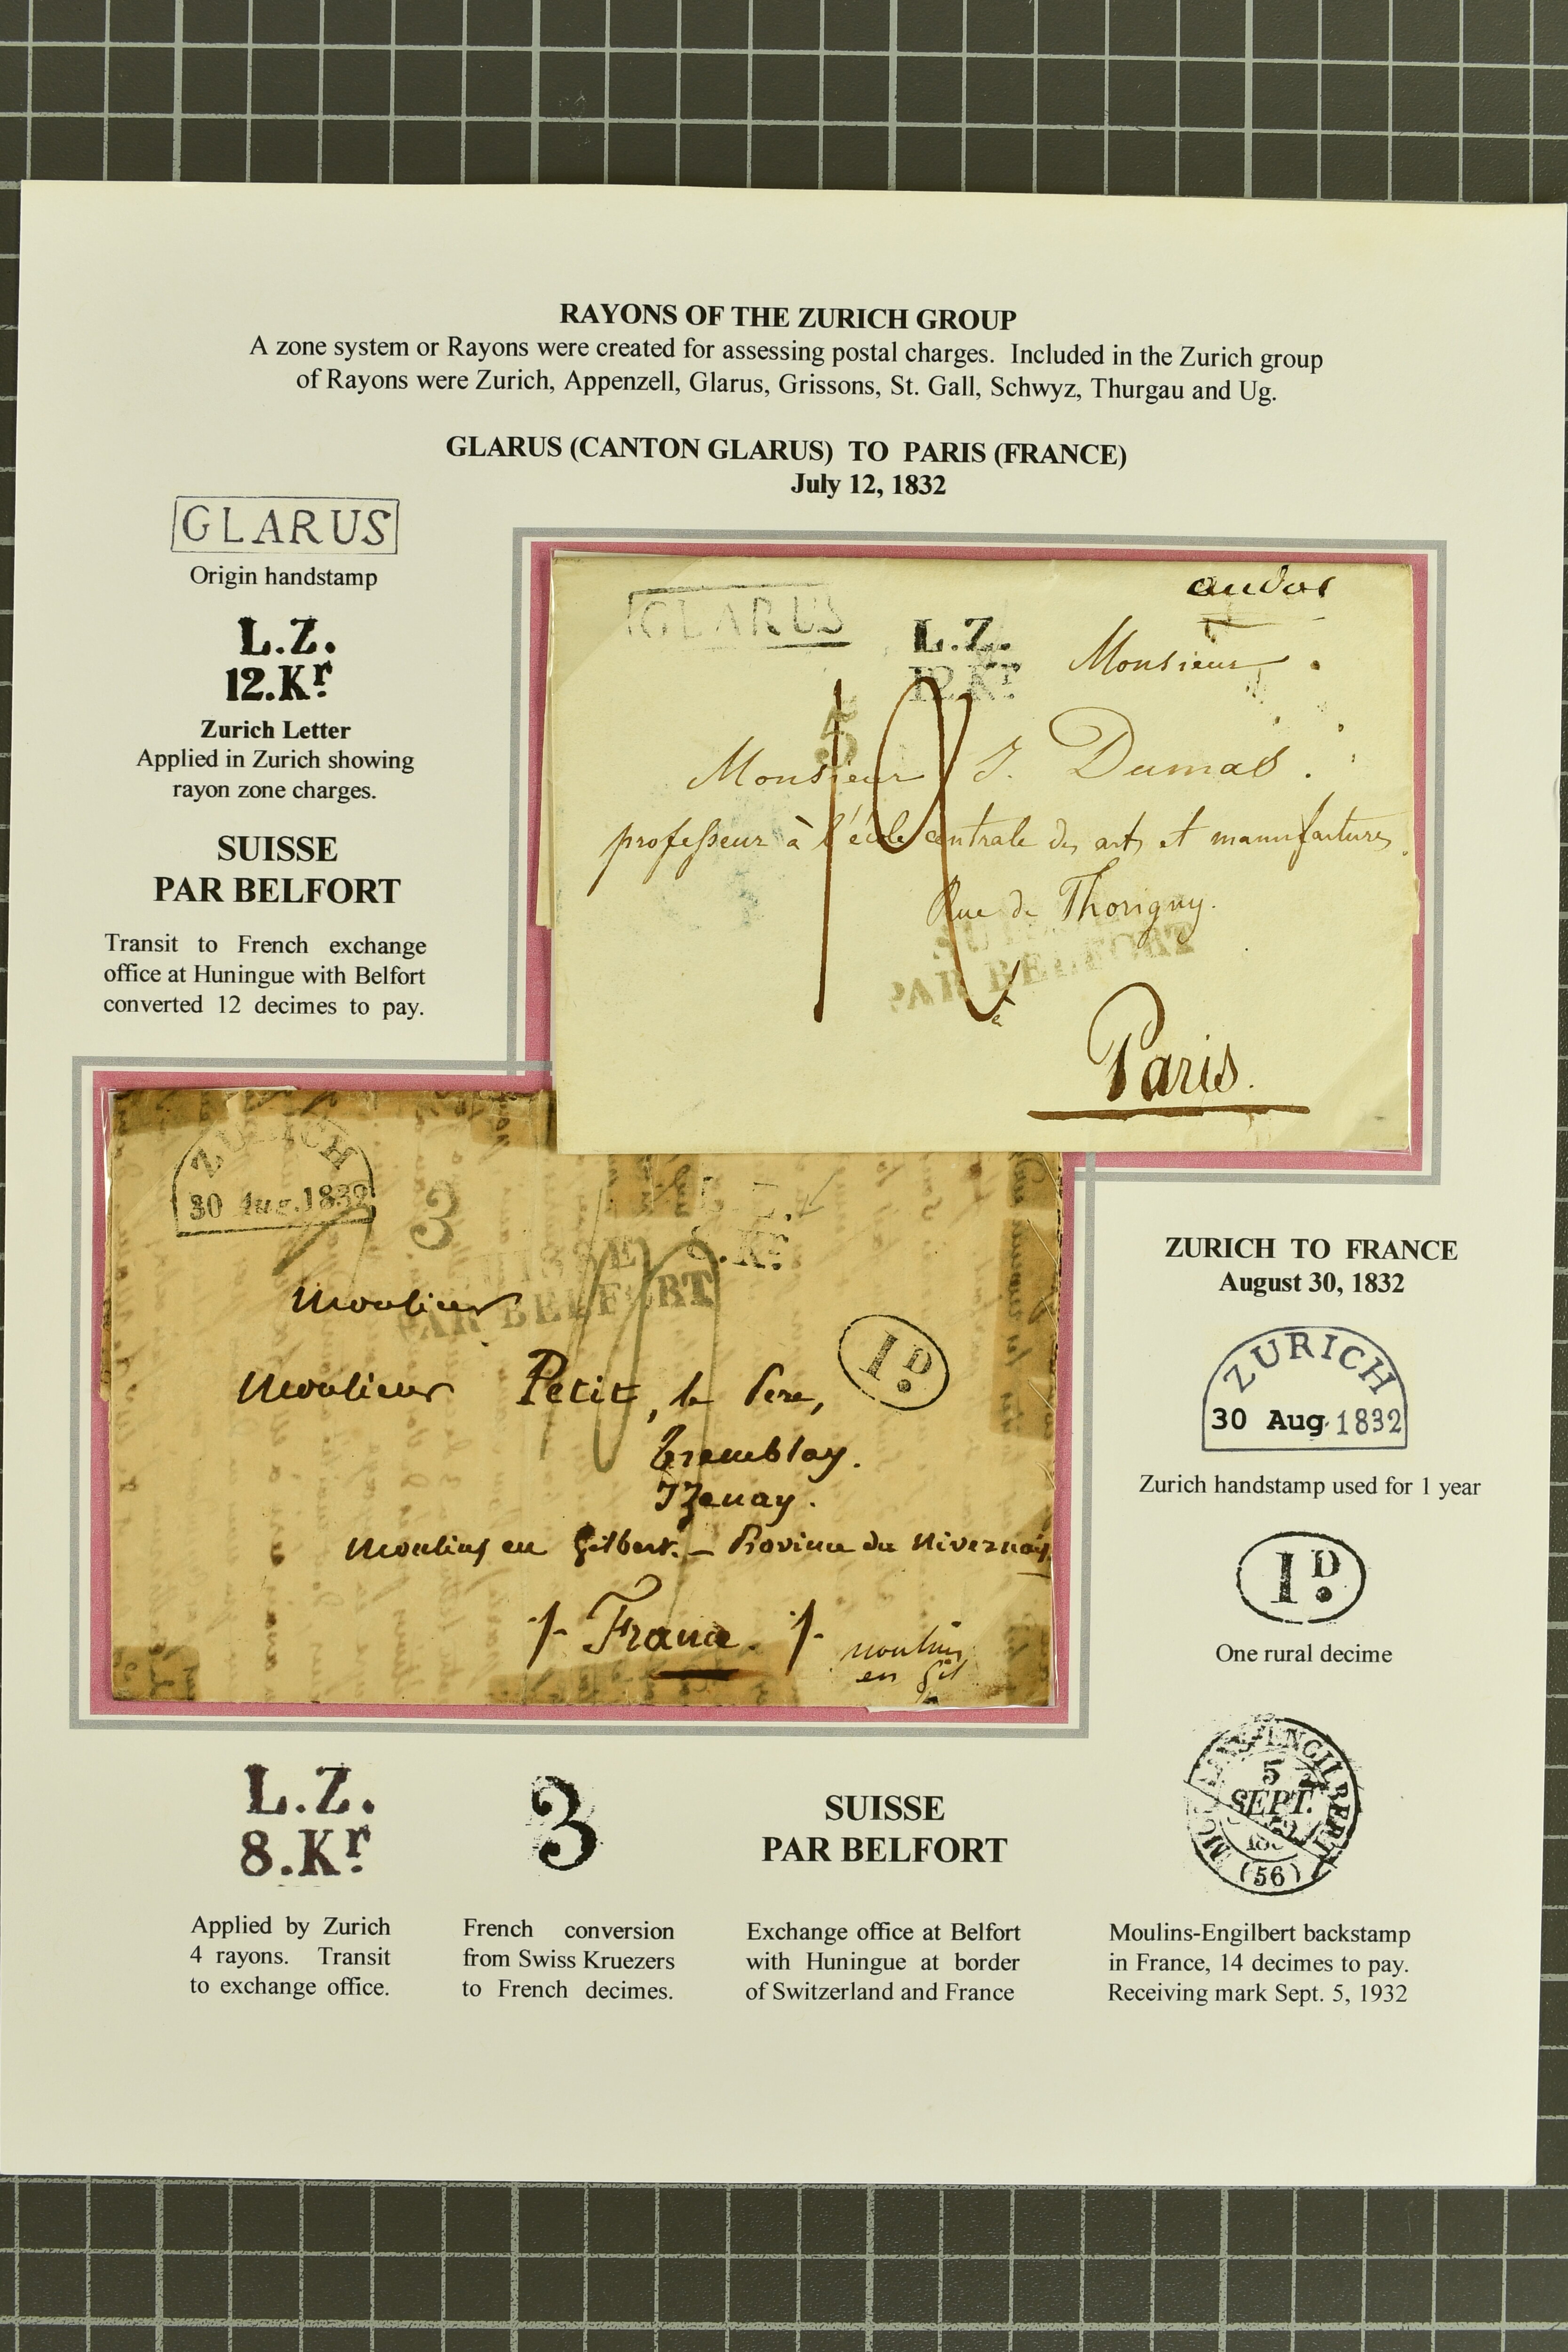 RAYONS OF THE ZURICH GROUP
A zone system or Rayons were created for assessing postal charges. Included in the Zurich group
of Rayons were Zurich, Appenzell, Glarus, Grissons, St. Gall, Schwyz, Thurgau and Ug.
GLARUS (CANTON GLARUS) TO PARIS (FRANCE)
July 12, 1832
GLARUS
Origin handstamp
L.Z.
12.Kr.
Zurich Letter
Applied in Zurich showing
rayon zone charges.
SUISSE
PAR BELFORT
Transit to French exchange
office at Huningue with Belfort
converted 12 decimes to pay.
GLARUS
L.Z.
12.Kr.
5
Monsieur
Monsieur J. Dumas.
professeur à l'école centrale des arts et manufactures
Rue de Thorigny.
PAR BELFORT
à
Paris.
ZURICH
30 Aug. 1832
3
SUISSE
PAR BELFORT
.Kr.
1D.
Monsieur
Monsieur Petit, le Pere,
Tremblay.
Moulins en Gilbert. – Province du Nivernois
/- France. /-
moulins
en Gil
ZURICH TO FRANCE
August 30, 1832
ZURICH
30 Aug 1832
Zurich handstamp used for 1 year
1D.
One rural decime
L.Z.
8.Kr.
Applied by Zurich
4 rayons. Transit
to exchange office.
3
French conversion
from Swiss Kruezers
to French decimes.
SUISSE
PAR BELFORT
Exchange office at Belfort
with Huningue at border
of Switzerland and France
5
SEPT.
(56)
Moulins-Engilbert backstamp
in France, 14 decimes to pay.
Receiving mark Sept. 5, 1932